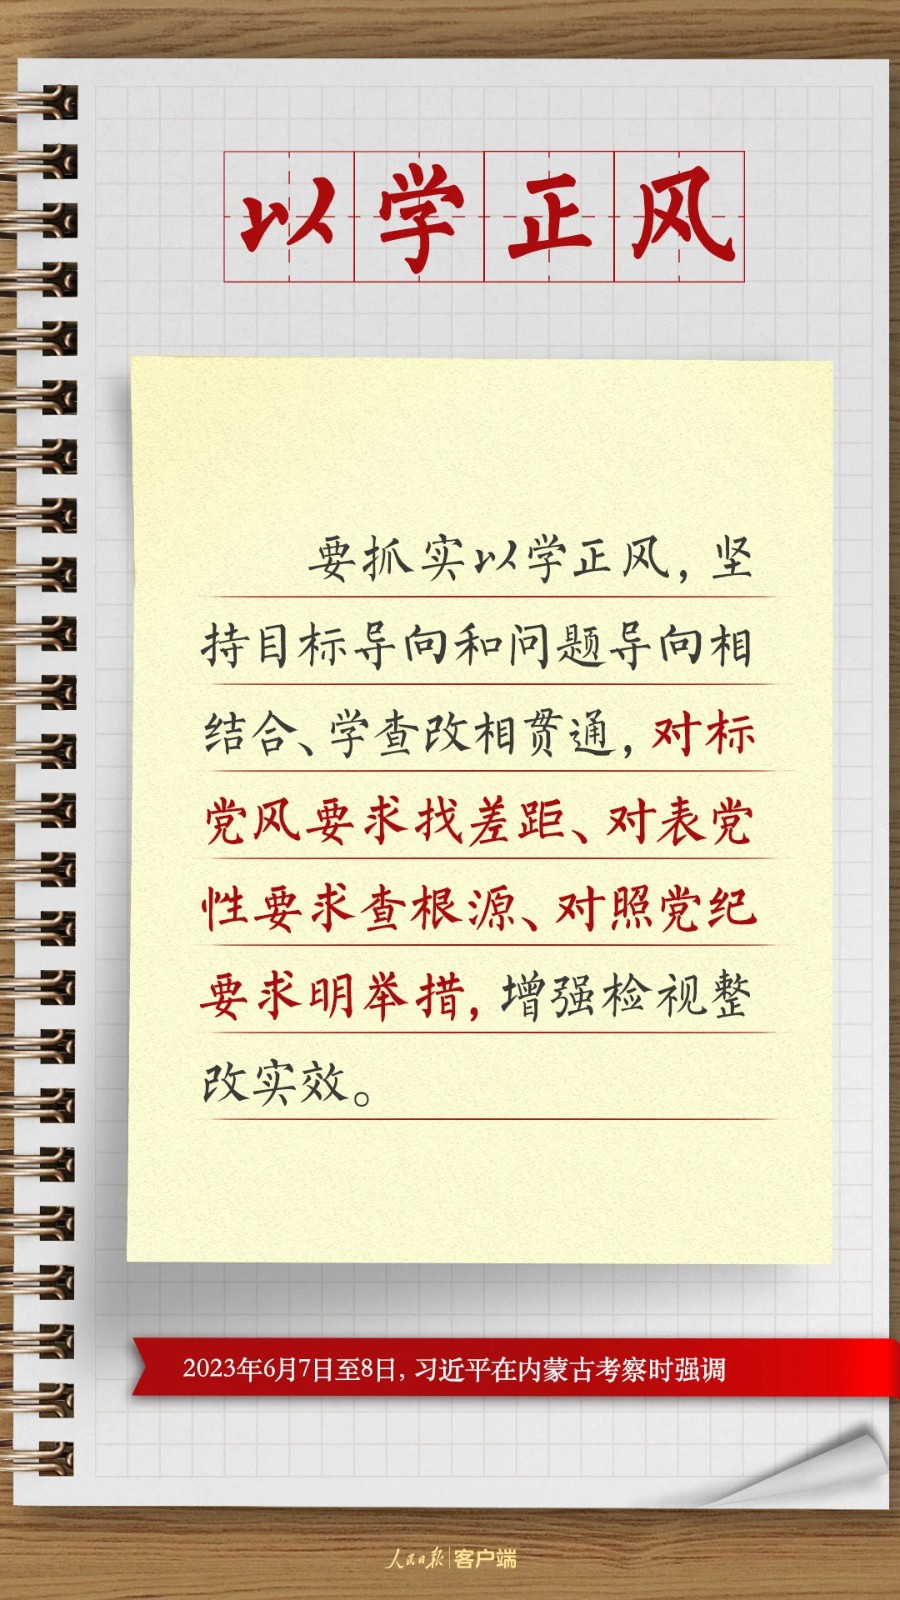 以学正风
要抓实以学正风，坚
持目标导向和问题导向相
结合、学查改相贯通，对标
党风要求找差距、对表党
性要求查根源、对照党纪
要求明举措，增强检视整
改实效。
2023年6月7日至8日，习近平在内蒙古考察时强调
人民日报|客户端